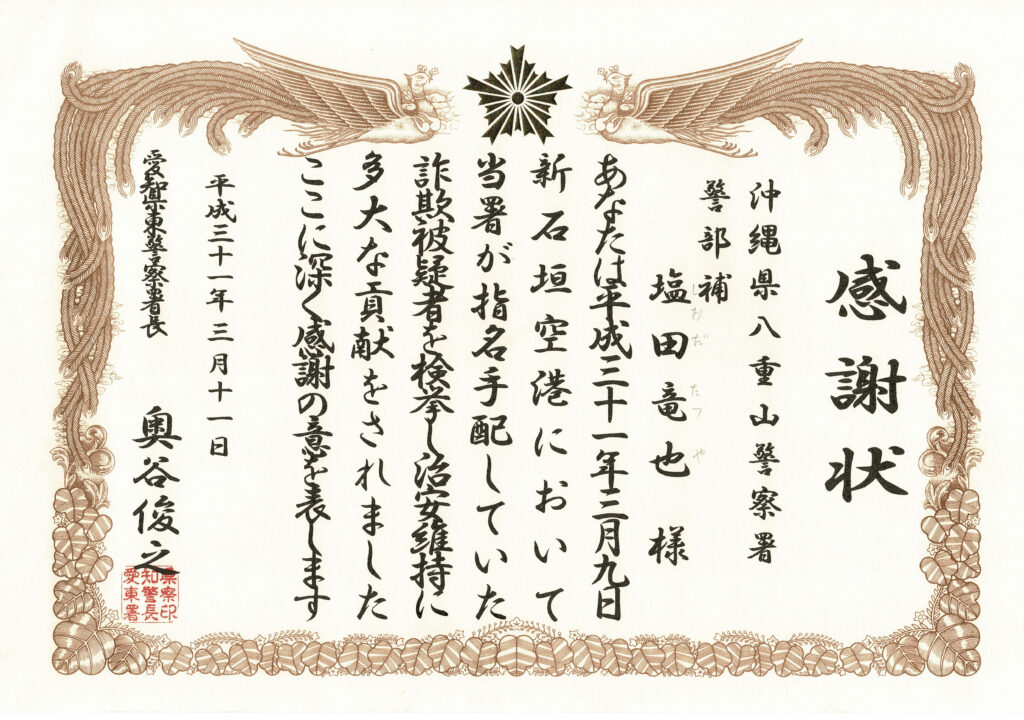 感謝状
沖縄県八重山警察署
警部補
塩田竜也 様
しおだ たつや
あなたは平成三十一年三月九日
新石垣空港において
当署が指名手配していた
詐欺被疑者を検挙し治安維持に
多大な貢献をされました
ここに深く感謝の意を表します
平成三十一年三月十一日
愛知県東警察署長
奥谷俊之
県察印
知警長
愛東署